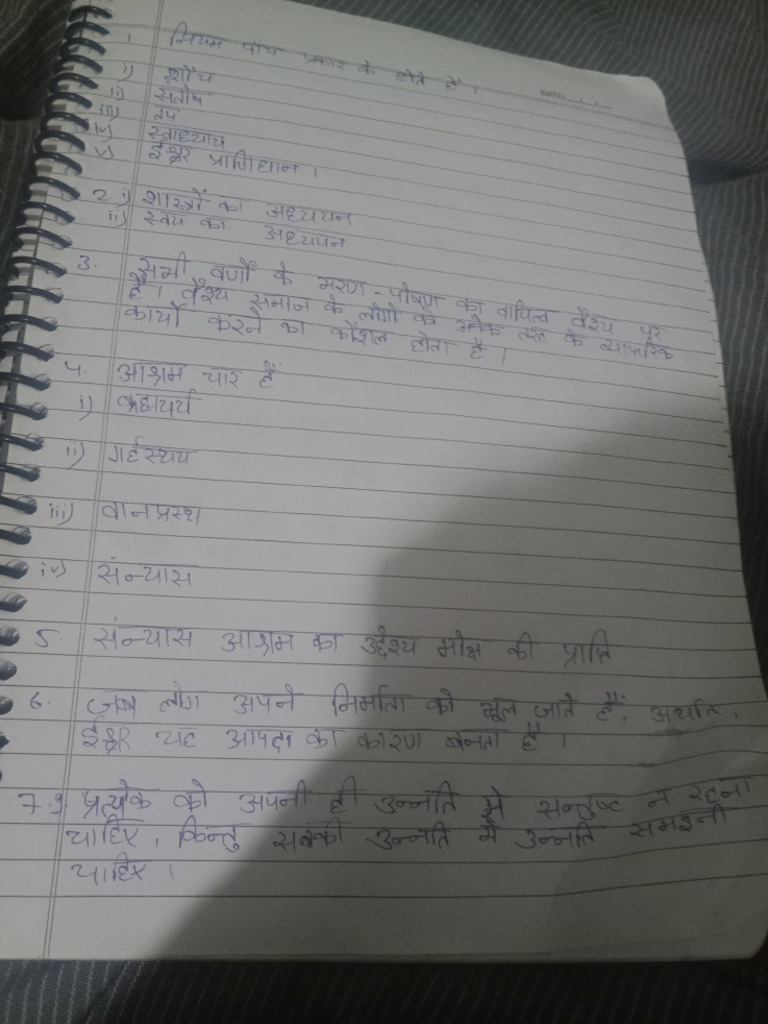 1. नियम पांच प्रकार के होते हैं।
i) शौच
ii) संतोष
iii) तप
iv) स्वाध्याय
v) ईश्वर प्राणिधान।
2 i) शास्त्रों का अध्ययन
ii) स्वयं का अध्ययन
3. सभी वर्णों के भरण-पोषण का दायित्व वैश्य पर
है। वैश्य समाज के लोगों को अनेक तरह के व्यापारिक
कार्यों करने का कौशल होता है।
4. आश्रम चार हैं
i) ब्रह्मचर्य
ii) गर्हस्थय
iii) वानप्रस्थ
iv) संन्यास
5. संन्यास आश्रम का उद्देश्य मोक्ष की प्राप्ति
6. जब लोग अपने निर्माता को भूल जाते हैं, अर्थात,
ईश्वर यह आपदा का कारण बनता है।
7. 9 प्रत्येक को अपनी ही उन्नति से सन्तुष्ट न रहना
चाहिए, किन्तु सबकी उन्नति में उन्नति समझनी
चाहिए।